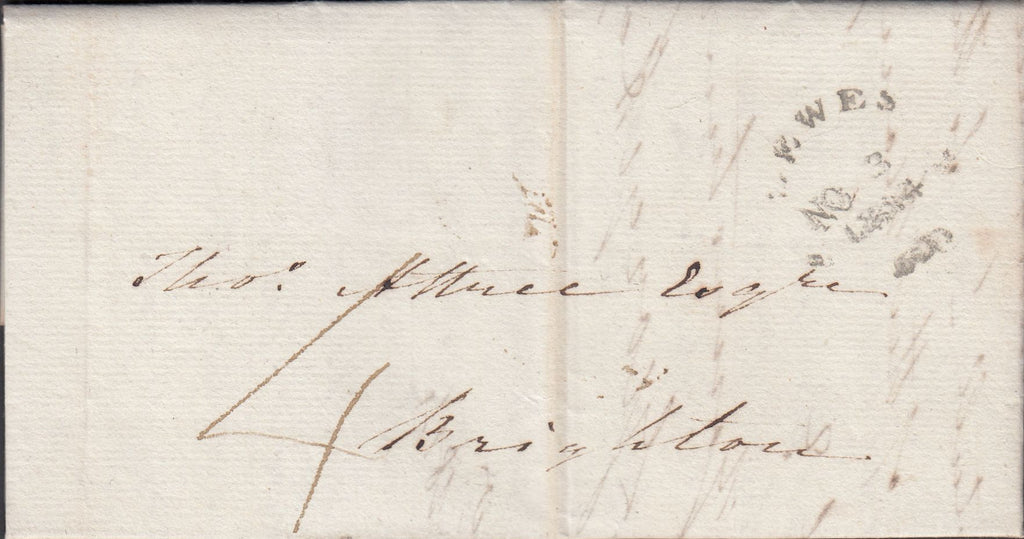 LEWES
NO 3
1814
Thos. Attree Esqre
4
Brighton